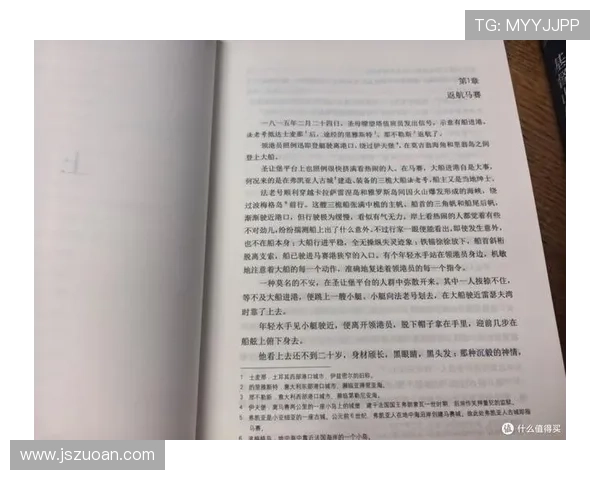 TG: MYYJJPP
上
第1章
返航马赛
一八一五年二月二十四日，圣母瞭望塔值班员发出信号，示意有船进港，
法老号抵达士麦那¹后，途经的里雅斯特²、那不勒斯³返航了。
领港员照例迅即登艇驶离港口，绕过伊夫堡⁴，在莫吉翁海角和里翁岛之间
登上大船。
圣让堡平台上也照例很快挤满看热闹的人。在马赛，大船进港自是大事，
何况来的是在弗凯亚人古城⁵建造、装备的三桅大船法老号，船主又是当地绅士。
法老号顺利穿越卡拉萨雷涅岛和雅罗斯岛间因火山爆发形成的海峡，绕
过波梅格岛⁶前行。这艘三桅船张满中桅的主帆、船首的三角帆和船尾后帆，
渐渐驶近港口，但行驶极为缓慢，看似有气无力，岸上看热闹的人都觉着有些
不对劲儿，纷纷揣测船上出了什么意外。不过行家一眼便能看出，即使发生意外，
也不在船本身；大船行进平稳，全无操纵失灵迹象；铁锚徐徐放下，船首斜桁
脱离支索，船已驶进马赛港狭窄的入口。有个年轻水手站在领港员身边，机敏
地注意着大船的每一个动作，准确地复述着领港员的每一个指令。
一种莫名的不安，在圣让堡平台的人群中弥散开来。其中一人按捺不住，
等不及大船进港，便跳上一艘小艇。小艇向法老号划去，在大船驶近雷瑟夫湾
时靠了上去。
年轻水手见小艇驶近，便离开领港员，脱下帽子拿在手里，迎前几步在
船舷上俯下身去。
他看上去还不到二十岁，身材颀长，黑眼睛，黑头发；那种沉毅的神情，
1 士麦那，土耳其西部港口城市，伊兹密尔的旧称。
2 的里雅斯特，意大利东部港口城市，濒临亚得里亚海。
3 那不勒斯，意大利西部港口城市，濒临第勒尼安海。
4 伊夫堡，离马赛两公里的一座小岛上的城堡，建于法国国王弗朗索瓦一世时期，后用作关押重犯的监狱。
5 弗凯亚是小亚细亚的一座古城。公元前七世纪，弗凯亚人在地中海沿岸创建马赛城，故此处弗凯亚人古城即指
马赛。
6 波梅格岛，地中海中靠近法国海岸的一个小岛。
值 什么值得买
www.jszuoan.com